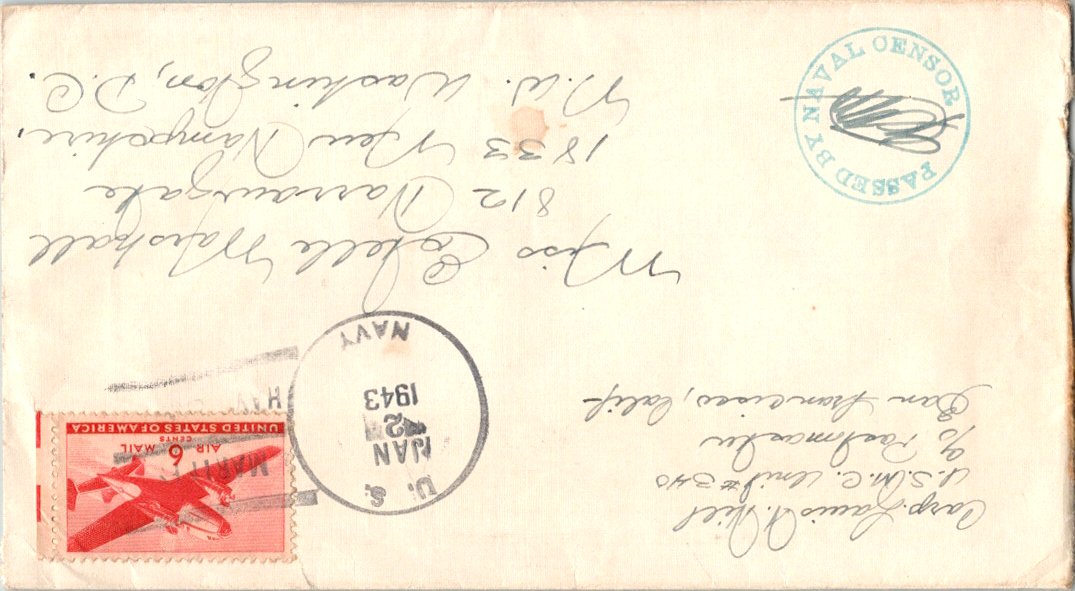 Corp. Louis F. Hiel
U.S.M.C. Unit # 340
c/o Postmaster
San Francisco, Calif.
U. S.
JAN
2
1943
NAVY
UNITED STATES OF AMERICA
AIR MAIL
6 CENTS
Miss Estelle Marshall
812 Narrawgate
1833 New Hampshire,
N.W. Washington, D.C.
PASSED BY NAVAL CENSOR